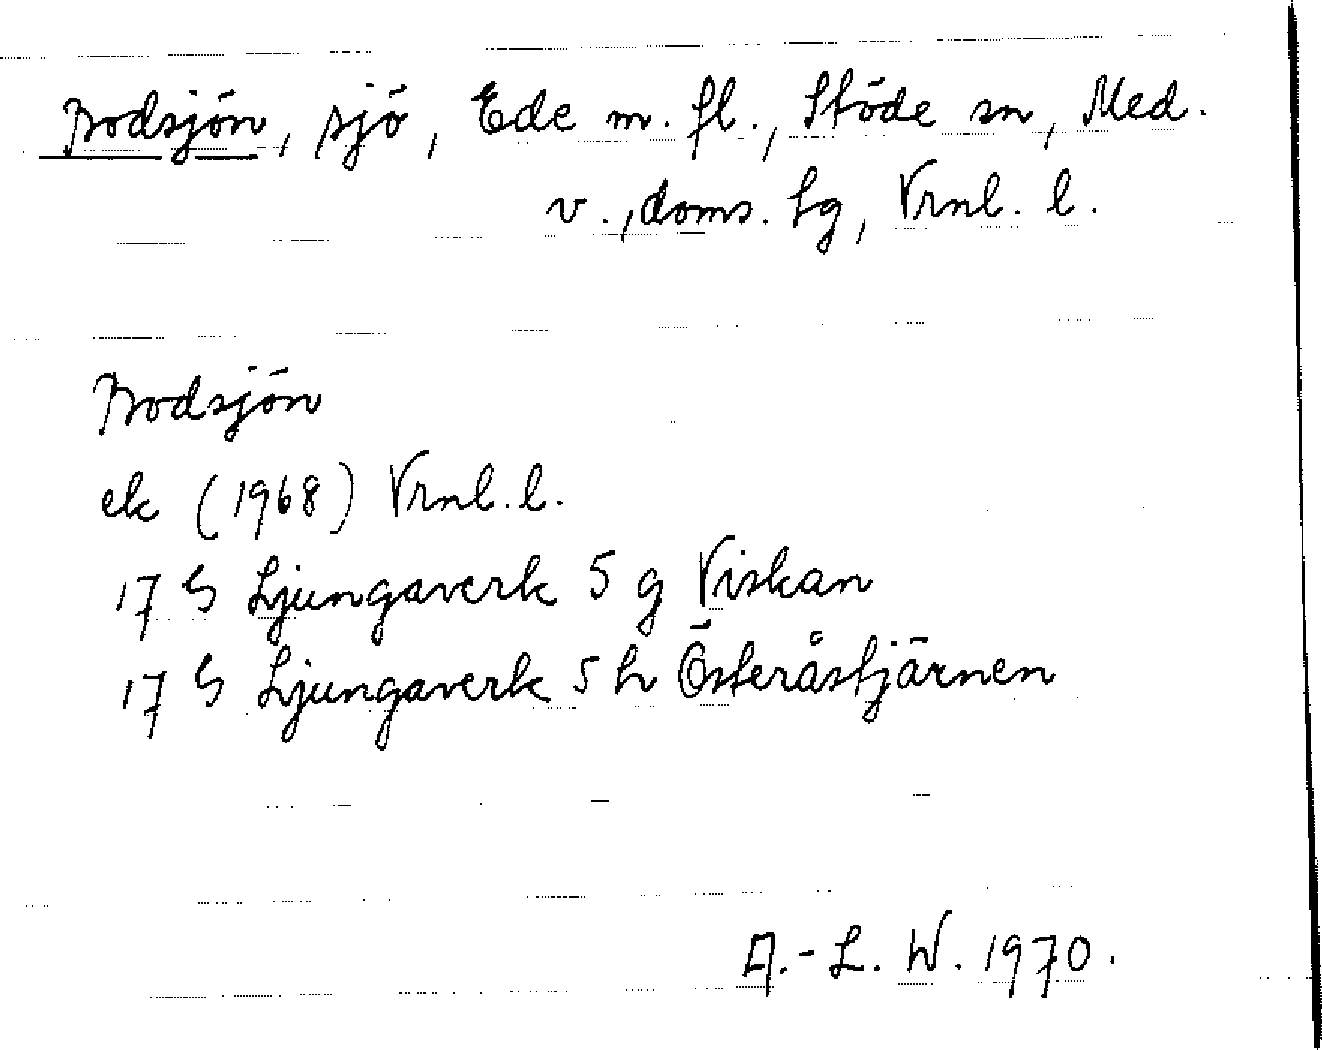 Bodsjön, sjö, Ede m. fl., Stöde sn, Med.
v., doms. hg, Vrnl. l.
Bodsjön
ek (1968) Vrnl. l.
17 G Ljungaverk 5 g Viskan
17 G Ljungaverk 5 h Österåstjärnen
A.-L. W. 1970.